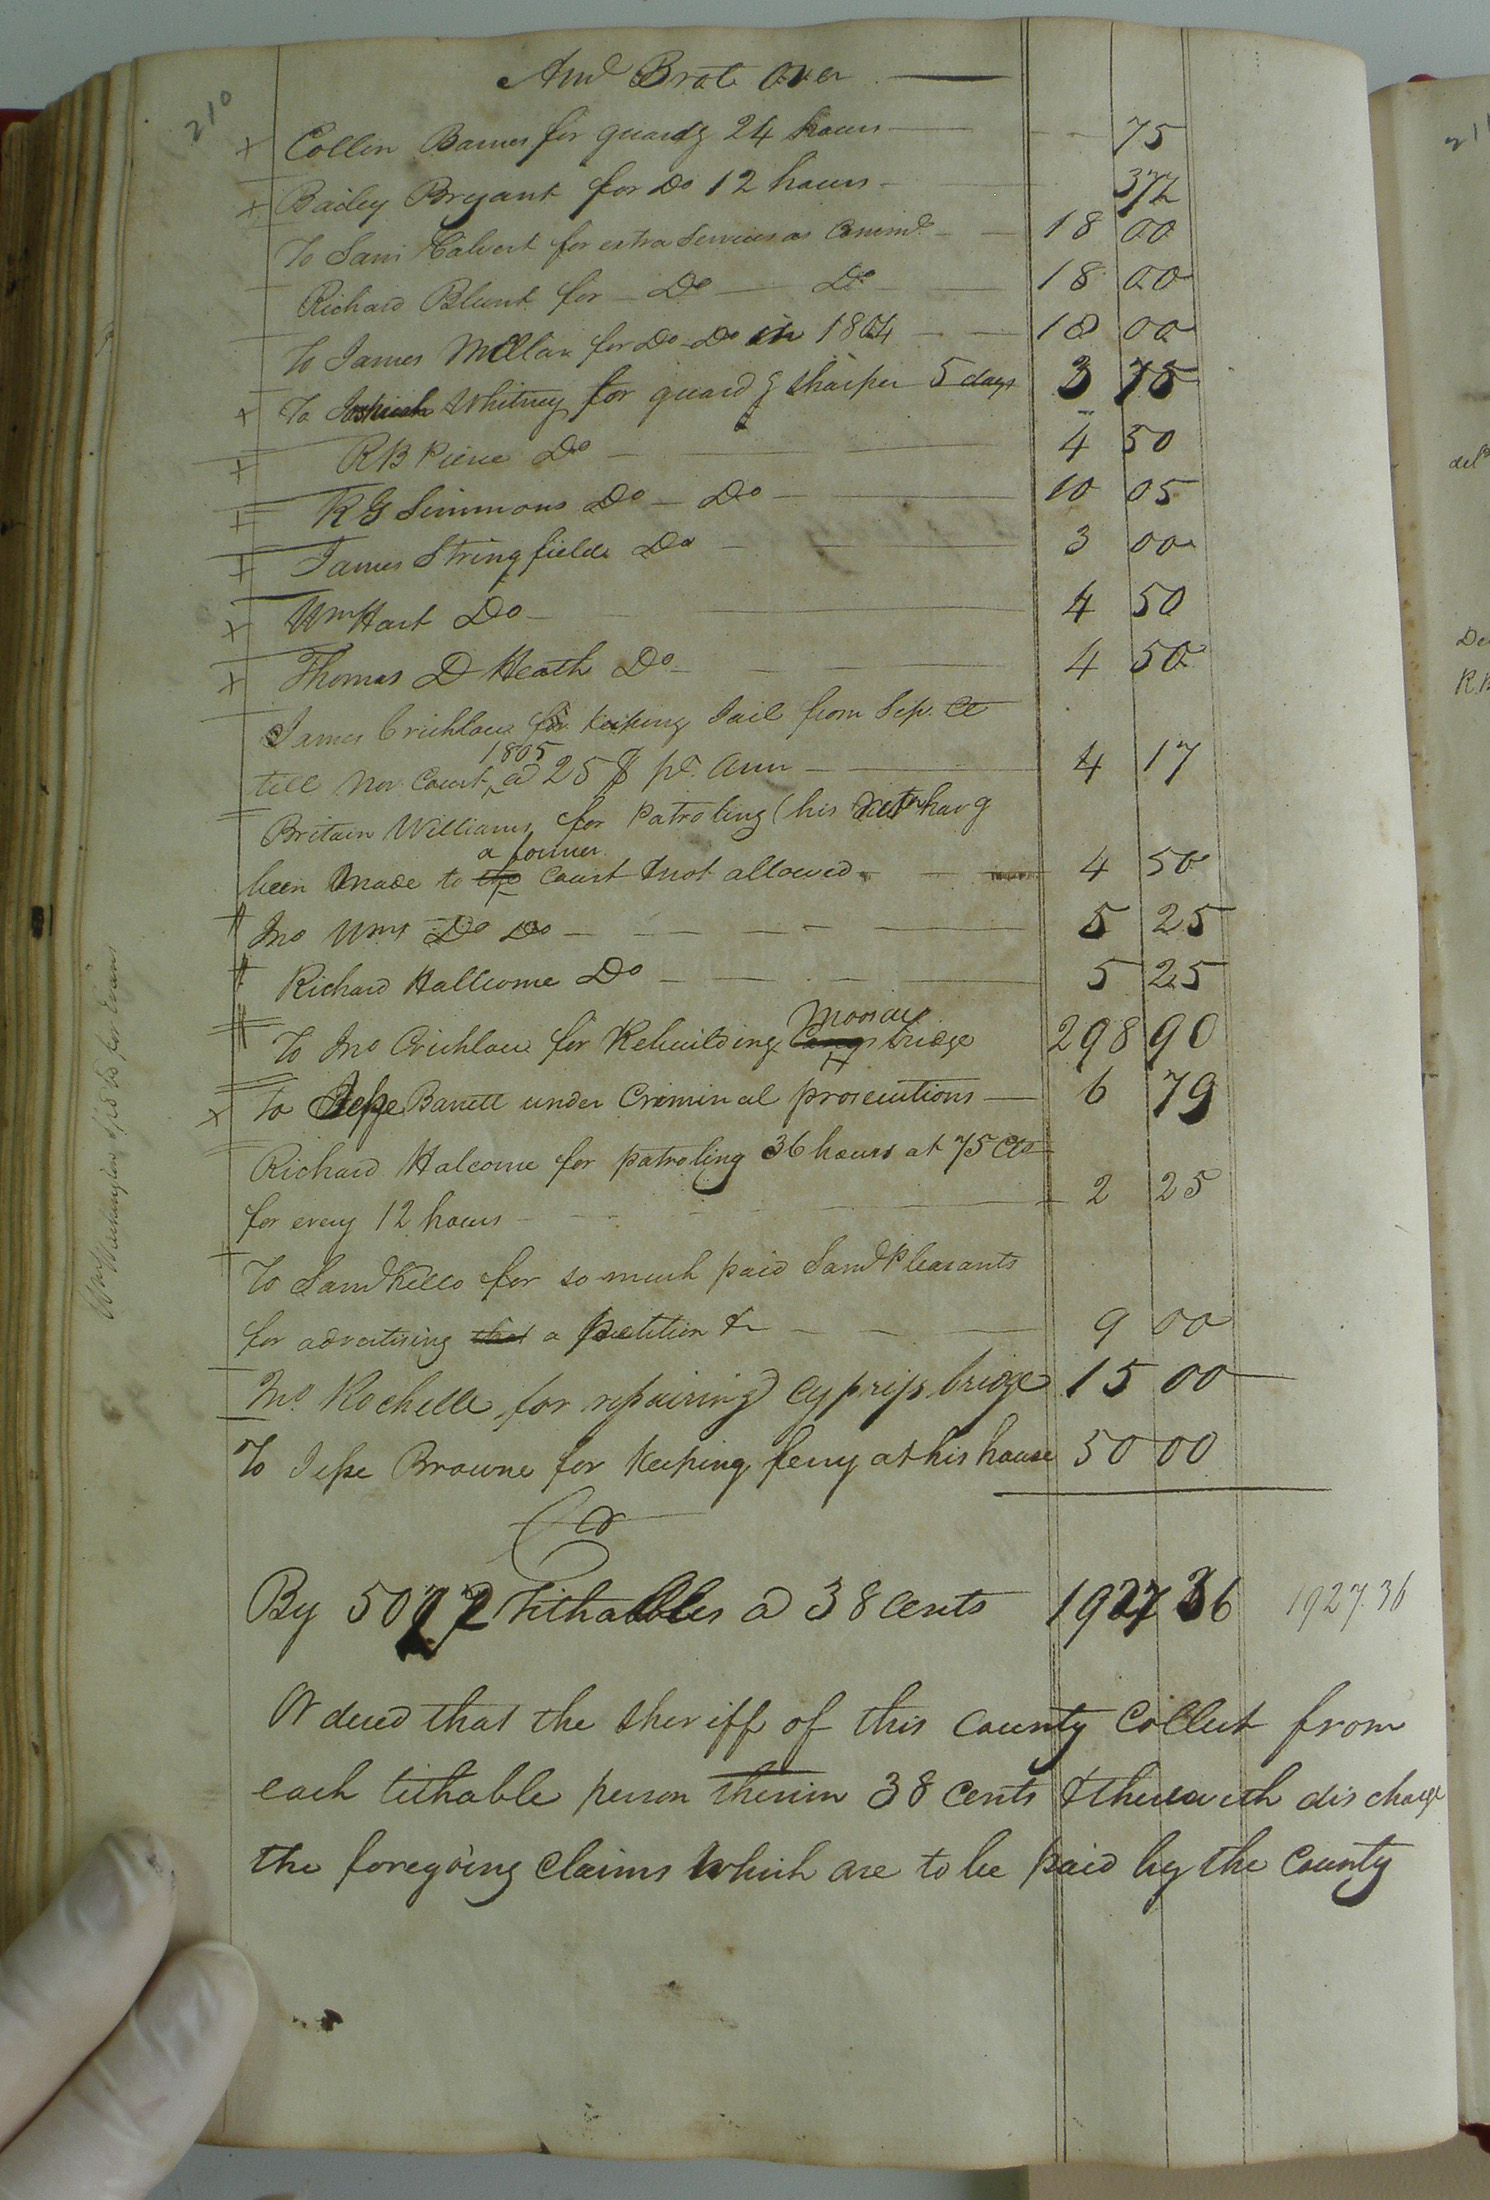 210
Amt Brot Over
Collin Barnes for guardg 24 hours 75
Bailey Bryant for Do 12 hours 37½
To Sam Calvert for extra Services as Commr 18 00
Richard Blunt for Do Do 18 00
To James McClan for Do Do in 1804 18 00
To Whitney for guardg Sharper 5 days 3 75
R B Pierce Do 4 50
R G Simmons Do Do 10 05
James Stringfield Do 3 00
Wm Hart Do 4 50
Thomas D Heath Do 4 50
James Crichlow for keeping Jail from Sep. Ct
1805
till Nov Court @ 25 $ pr. ann 4 17
Britain Williams for Patroling (his retn havg
a former
been made to the Court & not allowed 4 50
Jno Wms Do Do 5 25
Richard Hallcome Do 5 25
Monroe
To Jno Crichlow for Rebuilding bridge 298 90
To Jesse Barrett under Criminal prosecutions 6 79
Richard Halcome for patroling 36 hours at 75 Cts
for every 12 hours 2 25
To Saml Kello for so much paid Saml Pleasants
for advertising that a petition &c 9 00
Jno. Rochelle for repairing Cypress bridge 15 00
To Jesse Browne for keeping ferry at his house 50 00
Cr
By 5072 tithables @ 38 cents 1927 36 1927.36
Ordered that the Sheriff of this County Collect from
each tithable person therein 38 cents & therewith discharge
the foregoing Claims which are to be paid by the County
Wm Washington for Evans
211
del
R.B